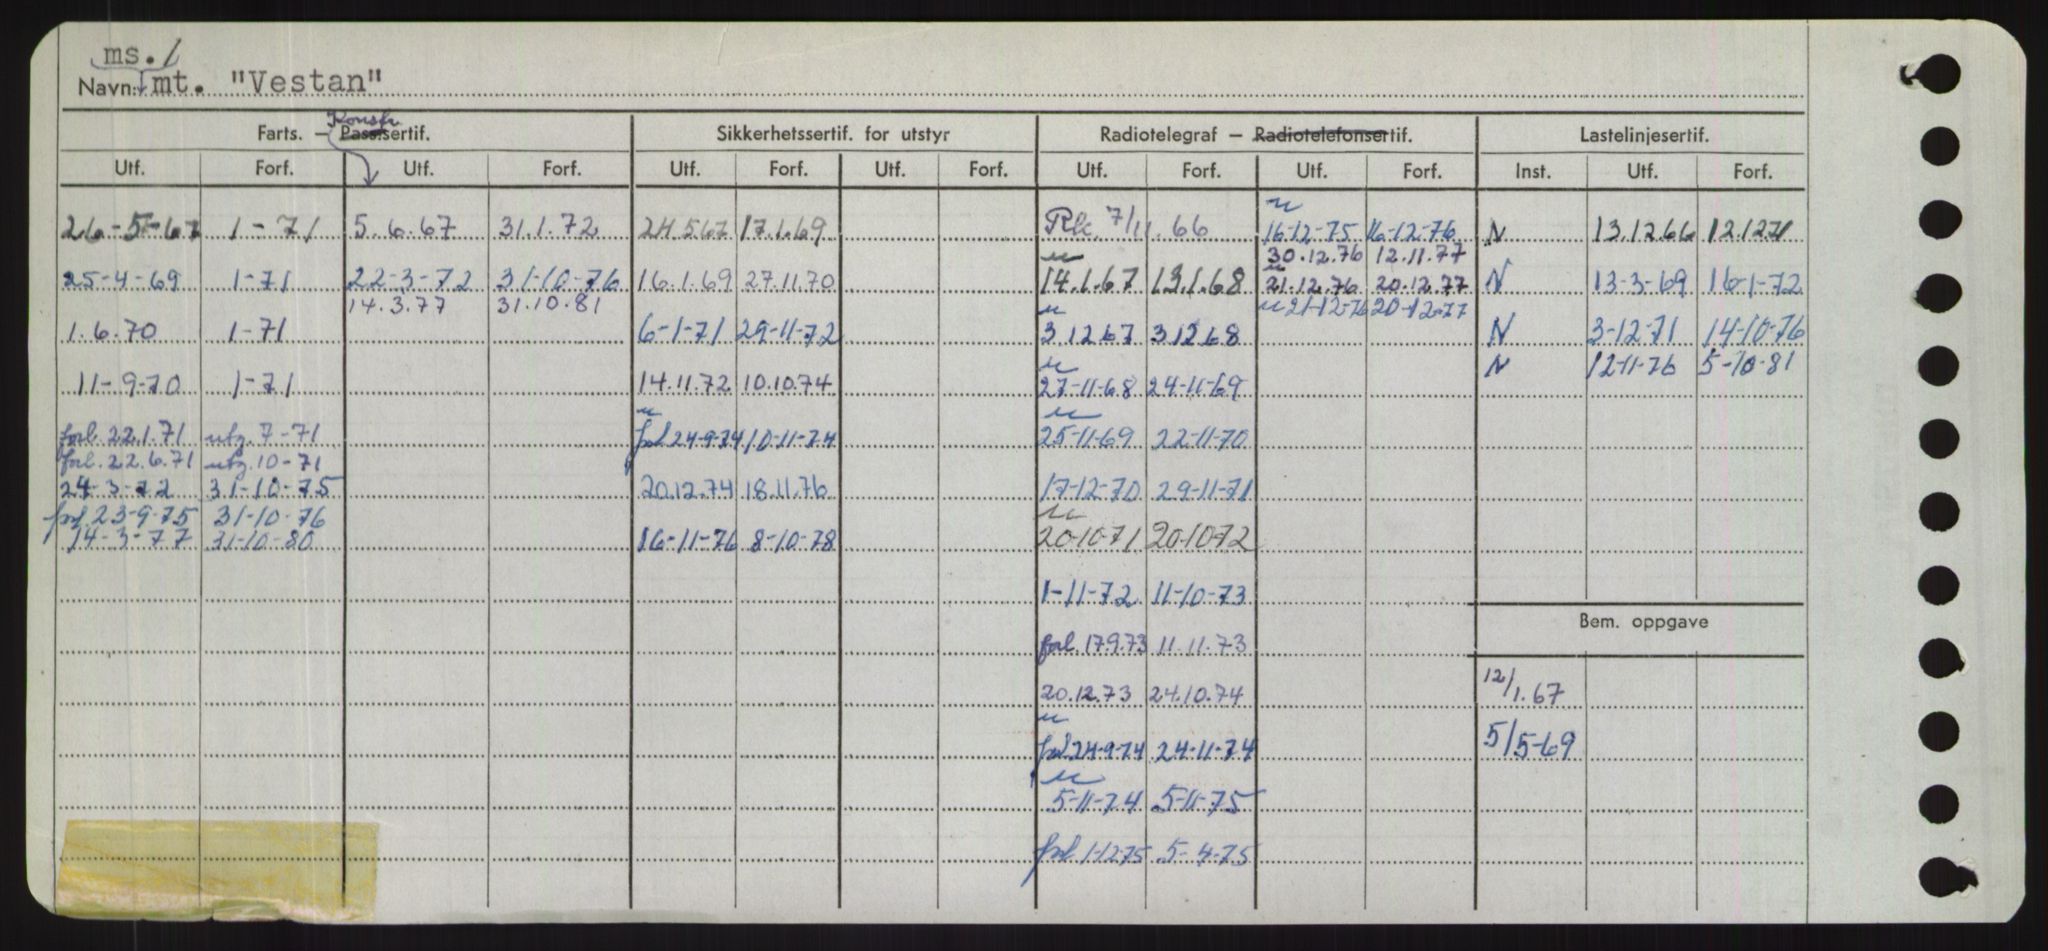 ms. /
Navn: mt. "Vestan"
Konstr.
Farts. — Pass.sertif. Sikkerhetssertif. for utstyr Radiotelegraf — Radiotelefonsertif. Lastelinjesertif.
Utf. Forf. Utf. Forf. Utf. Forf. Utf. Forf. Utf. Forf. Utf. Forf. Inst. Utf. Forf.
26-5-67 1-71 5.6.67 31.1.72 24.5.67 17.1.69 7/11.66 16-12-75 16-12-76 N 13.12.66 12.12.71
30.12.76 12.11.77
25-4-69 1-71 22-3-72 31-10-76 16.1.69 27.11.70 14.1.67 13.1.68 21.12.76 20.12.77 N 13-3-69 16-1-72
14.3.77 31.10.81 21-12-76 20-12-77
1.6.70 1-71 6-1-71 29-11-72 3.12.67 3.12.68 N 3-12-71 14-10-76
N 12-11-76 5-10-81
11-9-70 1-71 14.11.72 10.10.74 27-11-68 24-11-69
forl. 22.1.71 utg. 7-71 forl 24-9-74 10-11-74 25-11-69 22-11-70
forl. 22.6.71 utg. 10-71
24-3-72 31-10-75 20.12.74 18.11.76 17-12-70 29-11-71
forl. 23-9-75 31-10-76
14-3-77 31-10-80 16-11-76 8-10-78 20-10-71 20-10-72
1-11-72 11-10-73
Bem. oppgave
forl. 17.9.73 11.11.73
20.12.73 24.10.74 12/1.67
forl 24-9-74 24-11-74 5/5-69
5-11-74 5-11-75
forl 1-12-75 5-4-75